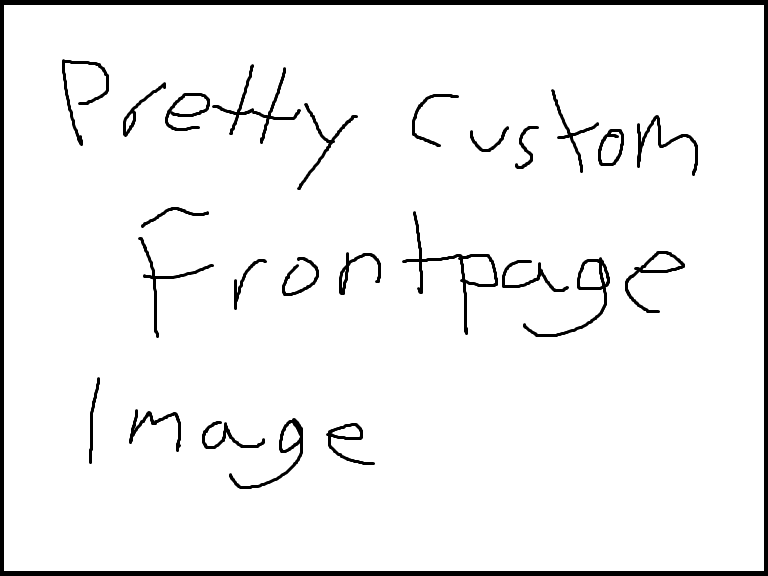 Pretty Custom
Frontpage
Image